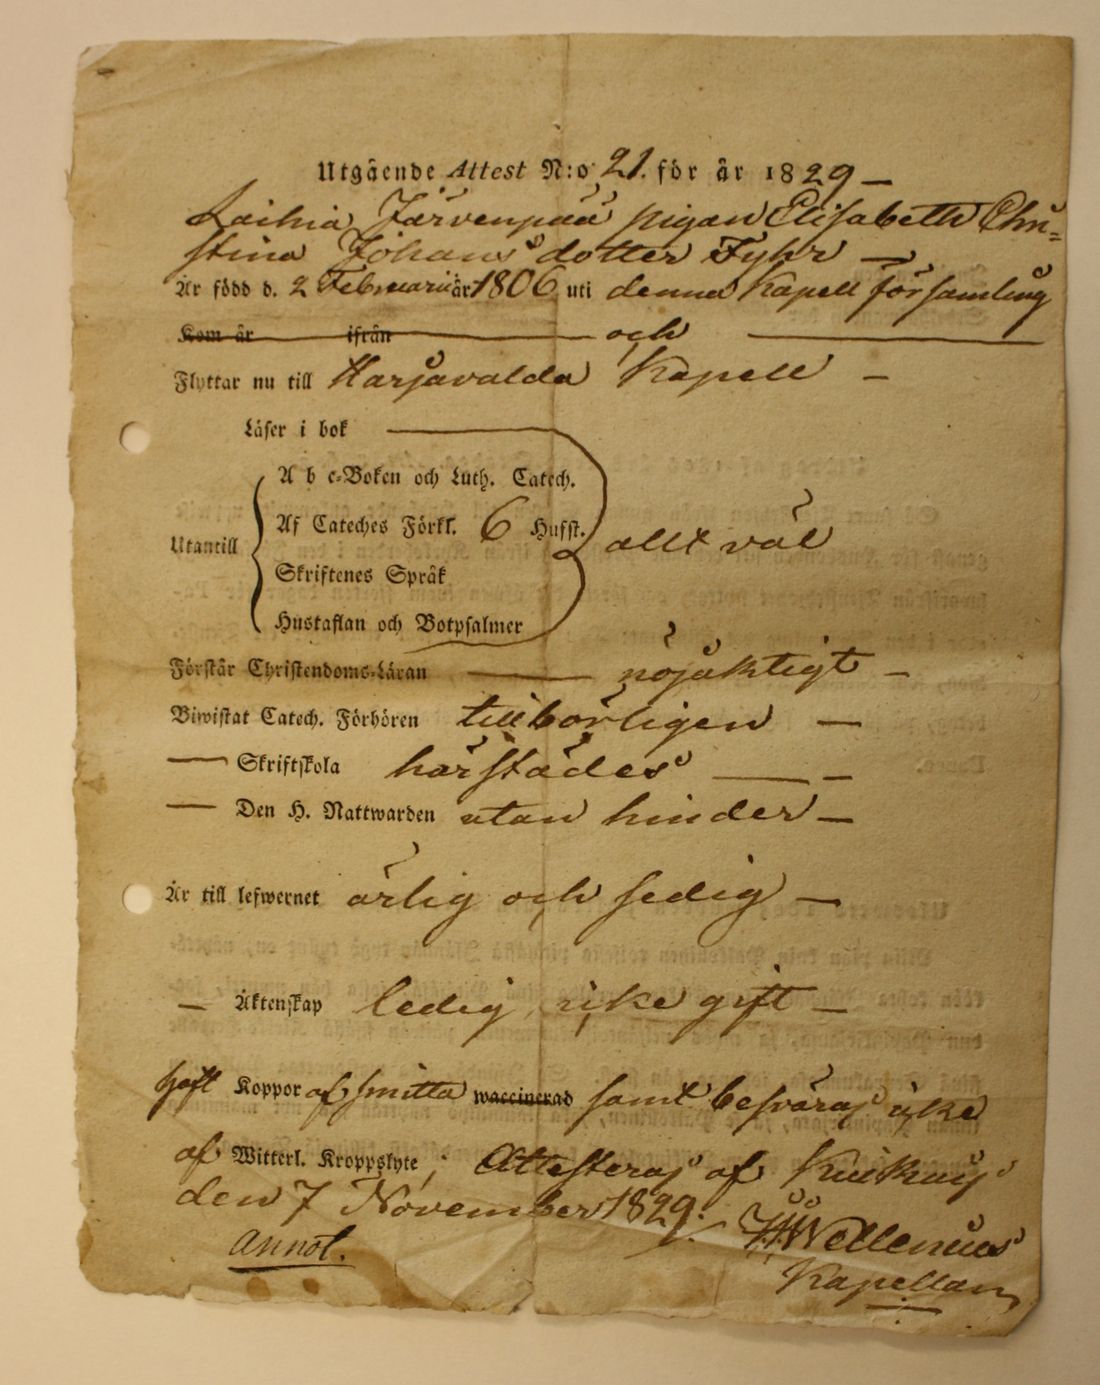 Utgående Attest N:o 21. för år 1829 —
Laihia Järvenpää pigan Elisabeth Chri=
stina Johans dotter Fyhr —
Är född d. 2 Februarii år 1806 uti denna Kapell församling
Kom år ifrån och
Flyttar nu till Harjavalda Kapell —
Läser i bok
A b c-Boken och Luth. Catech.
Af Cateches Förkl. 6 Hufst.
Utantill allt väl
Skriftenes Språk
Hustaflan och Botpsalmer
Förstår Christendoms-Läran — nöjaktigt —
Biwistat Catech. Förhören tillbörligen —
— Skriftskola härstädes —
— Den H. Nattwarden utan hinder —
Är till lefwernet ärlig och sedig —
— Äktenskap ledig, icke gift —
haft Koppor af smitta waccinerad samt besväras icke
af Witterl. Kroppslyte; Attesteras af
den 7 November 1829.
Annot. Wellenius
Kapellan